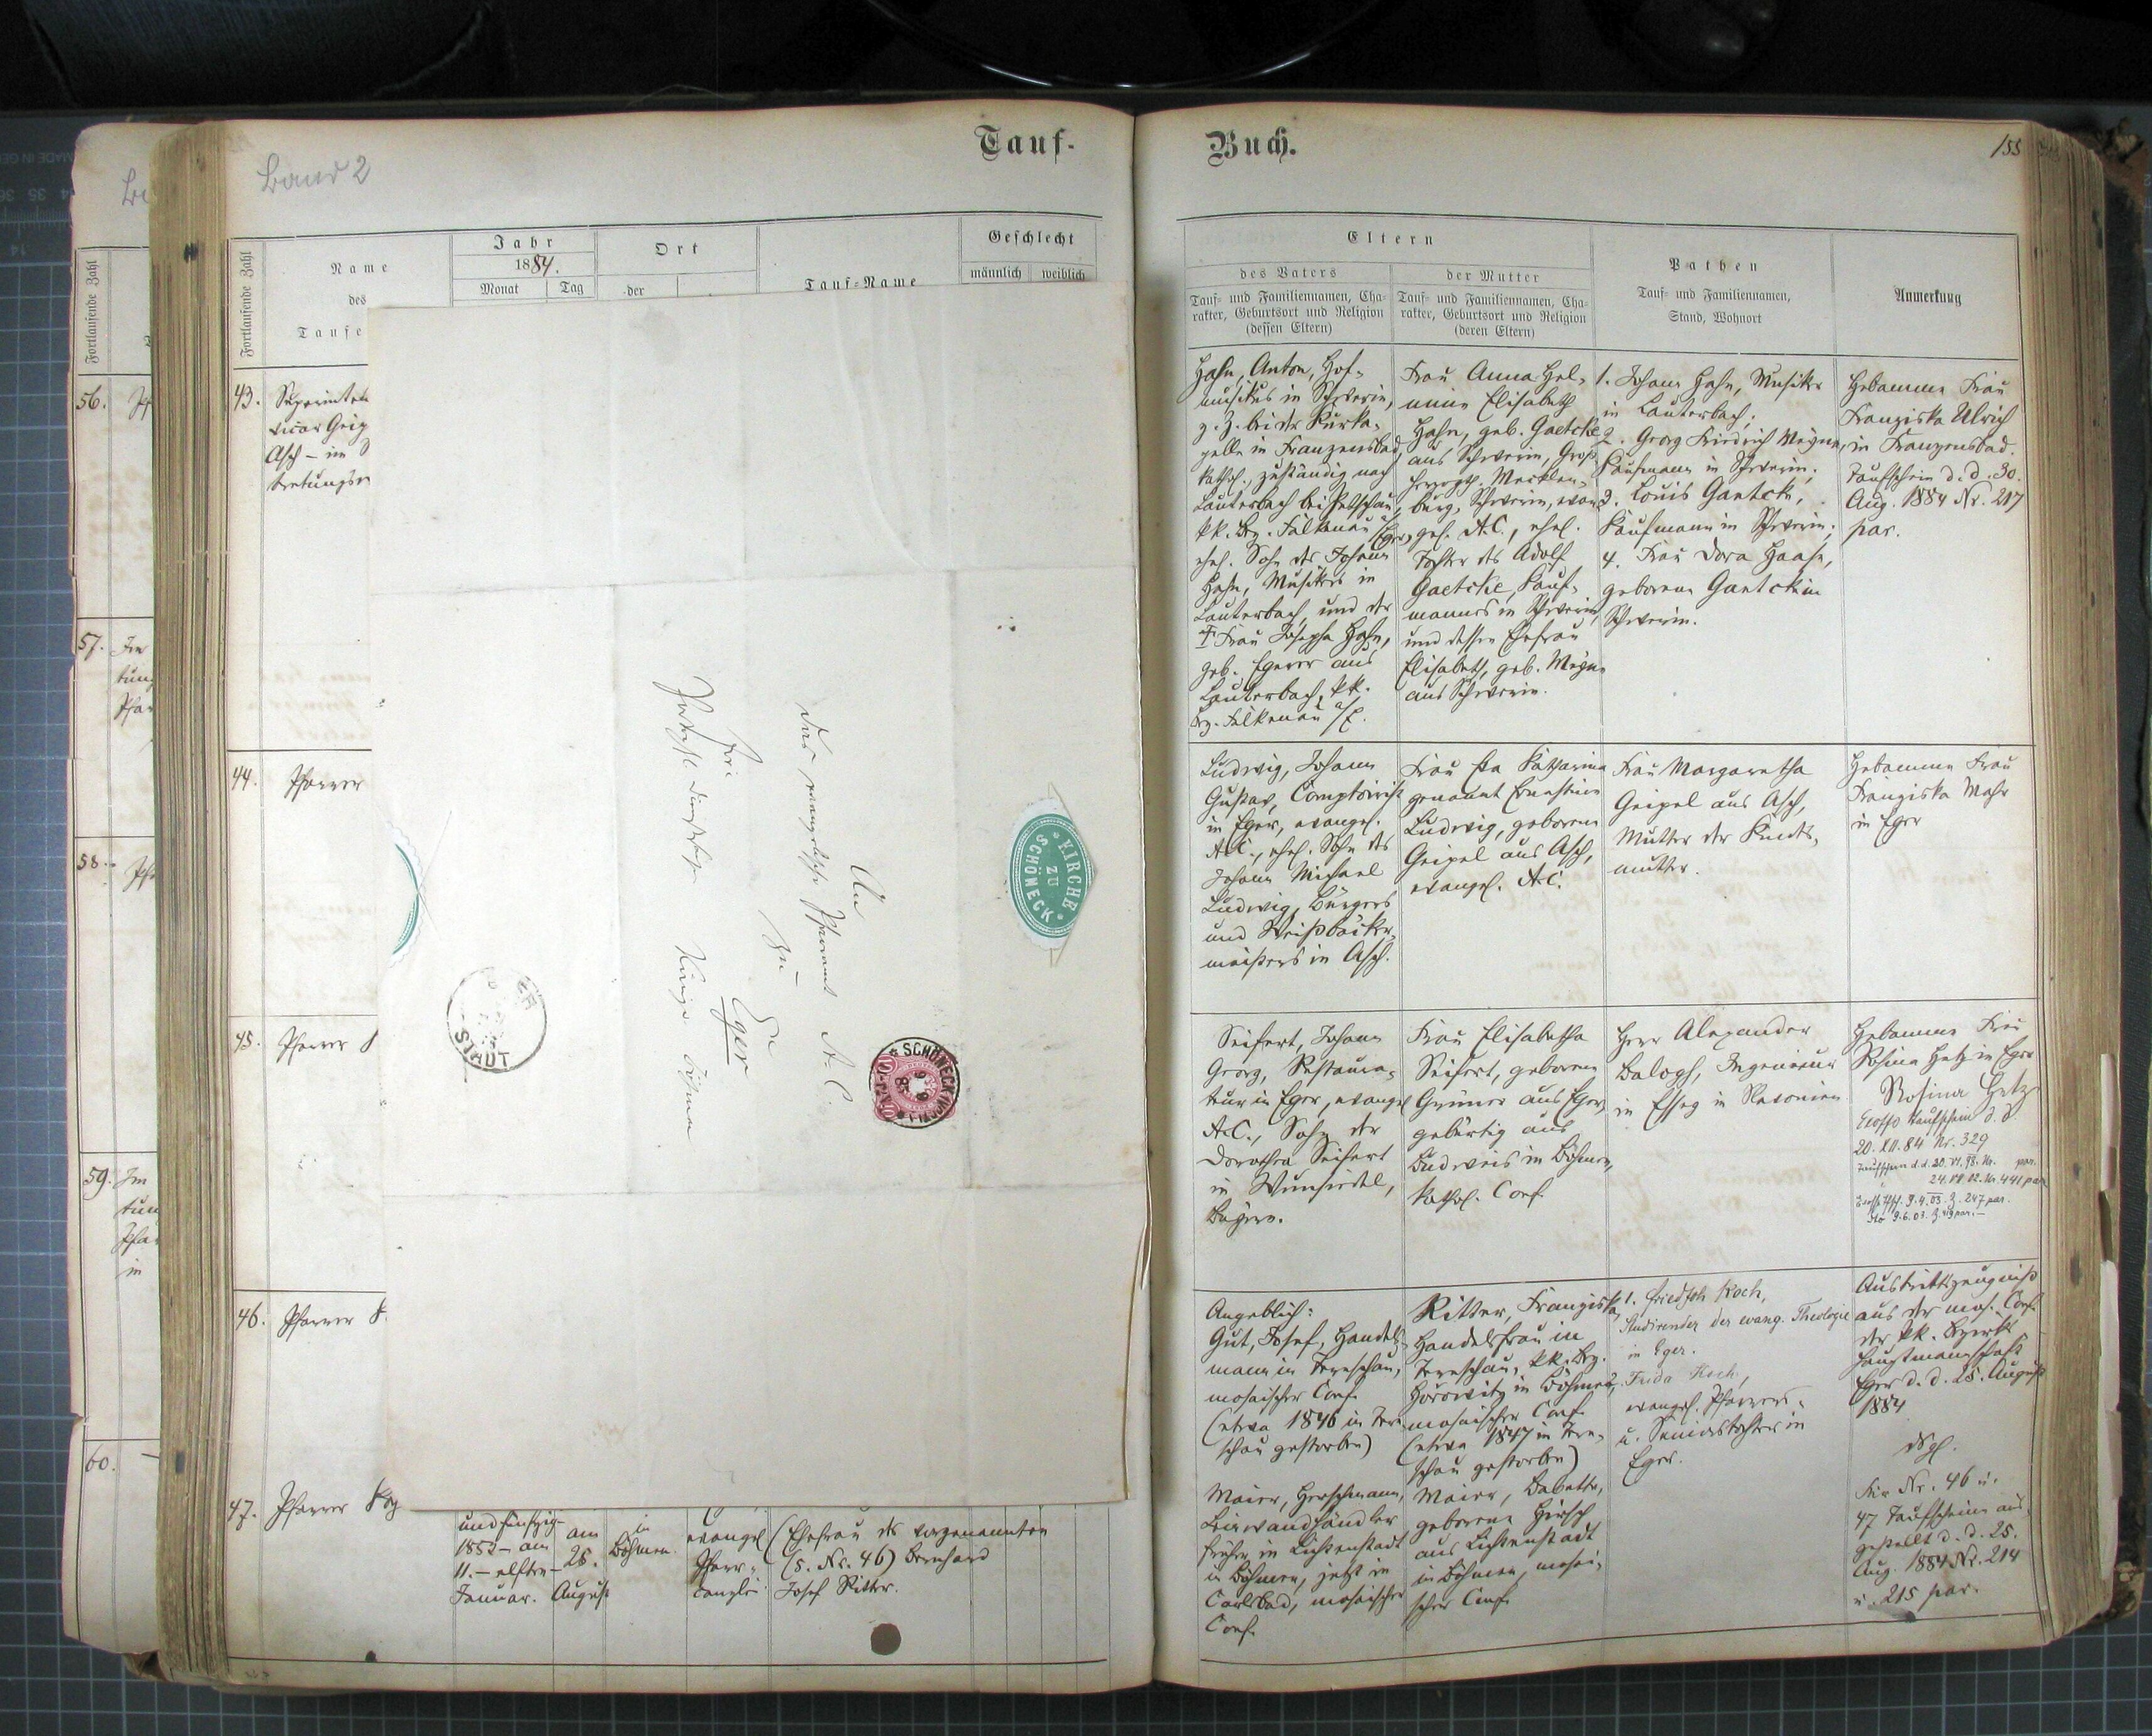 Tauf-
Band 2
Fortlaufende Zahl
Name
des
Taufe
Jahr
1884.
Monat
Tag
Ort
der
Tauf-Name
Geschlecht
männlich
weiblich
56.
57.
58.
59. Im
60.
43.
Asch - im
44. Pfarrer
45. Pfarrer
46. Pfarrer
47. Pfarrer
KIRCHE
ZU
SCHÖNECK
An
das evangelische Pfarramt A. C.
zu
Eger
Frei
STADT
SCHÖNECK
und fünfzig
1852 - am
11. - elften -
Januar.
am
25.
August
in
Böhmen.
evangel
Pfarr-
canzlei
(Ehefrau des vorgenannten
(s. Nr. 46) Bernhard
Josef Ritter.
Buch.
155
Eltern
des Vaters
Tauf- und Familiennamen, Cha-
rakter, Geburtsort und Religion
(dessen Eltern)
der Mutter
Tauf- und Familiennamen, Cha-
rakter, Geburtsort und Religion
(deren Eltern)
Pathen
Tauf- und Familiennamen,
Stand, Wohnort
Anmerkung
Hahn, Anton, Hof-
musikus in Schwerin,
z. Z. bei der Kurka-
pelle in Franzensbad,
kathol., zuständig nach
Lauterbach bei Petschau,
kk. Bez. Falkenau a/
Eger,
ehel. Sohn des Johann
Hahn, Musikers in
Lauterbach, und der
Frau Josepha Hahn,
geb. Egerer aus
Lauterbach, kk.
Bez. Falkenau a/E.
Frau Anna Hel-
mine Elisabeth
Hahn, geb. Gaetcke
aus Schwerin, Groß
herzogth. Mecklen-
burg, Schwerin, evan
gel. A.C., ehel.
Tochter des Adolf
Gaetcke, Kauf-
manns in Schwerin,
und dessen Ehefrau
Elisabeth, geb.
aus Schwerin.
1. Johann Hahn, Musiker
in Lauterbach;
2. Georg Friedrich
Kaufmann in Schwerin;
3. Louis Gaetcke,
Kaufmann in Schwerin;
4. Frau Dora Haase,
geborene Gaetcke in
Schwerin.
Hebamme Frau
Franziska Ulrich
in Franzensbad.
Taufschein d. d. 30.
Aug. 1884 Nr. 217
par.
Ludwig, Johann
Gustav, Comptoirist
in Eger, evangel.
A.C., ehel. Sohn des
Johann Michael
Ludwig, Bürgers
und Weißbäcker-
meisters in Asch.
Frau Eva Katharina
genannt Ernestine
Ludwig, geborene
Geipel aus Asch,
evangel. A.C.
Frau Margaretha
Geipel aus Asch,
Mutter der Kindes-
mutter.
Hebamme Frau
Franziska Mohr
in Eger
Seifert, Johann
Georg, Restaura-
teur in Eger, evangel
A.C., Sohn der
Dorothea Seifert
in Wunsiedel,
Bayern.
Frau Elisabetha
Seifert, geborene
Grüner aus Eger,
gebürtig aus
Budweis in Böhmen,
kathol. Conf.
Herr Alexander
Balogh, Ingenieur
in Esseg in Slavonien
Hebamme Frau
Rosina Hetz in Eger
Rosina Hetz
Taufschein d. d.
20. XII. 84 Nr. 329
Angeblich:
Gut, Josef, Handels-
mann in Tereschau,
mosaischer Conf.
(etwa 1846 in Tere-
schau gestorben)
Ritter, Franziska,
Handelsfrau in
Tereschau, kk. Bez.
Horowitz in Böhmen,
mosaischer Conf.
(etwa 1847 in Tere-
schau gestorben)
1. Friedrich Koch,
Studirender der evang. Theologie
in Eger.
2. Frida Koch,
evangel. Pfarrers-
u. Seniorstochter in
Eger.
Austrittszeugniß
aus der mos. Conf.
der kk. Bezirks
hauptmannschaft
Eger d. d. 25. August
1884
Maier, Herschmann,
Leinwandhändler
früher in Lichtenstadt
in Böhmen, jetzt in
Carlsbad, mosaischer
Conf.
Maier, Babette,
geborene Hirsch
aus Lichtenstadt
in Böhmen, mosai-
scher Conf.
dsgl.
Für Nr. 46 u.
47 Taufscheine aus-
gestellt d. d. 25.
Aug. 1884 Nr. 214
u. 215 par.